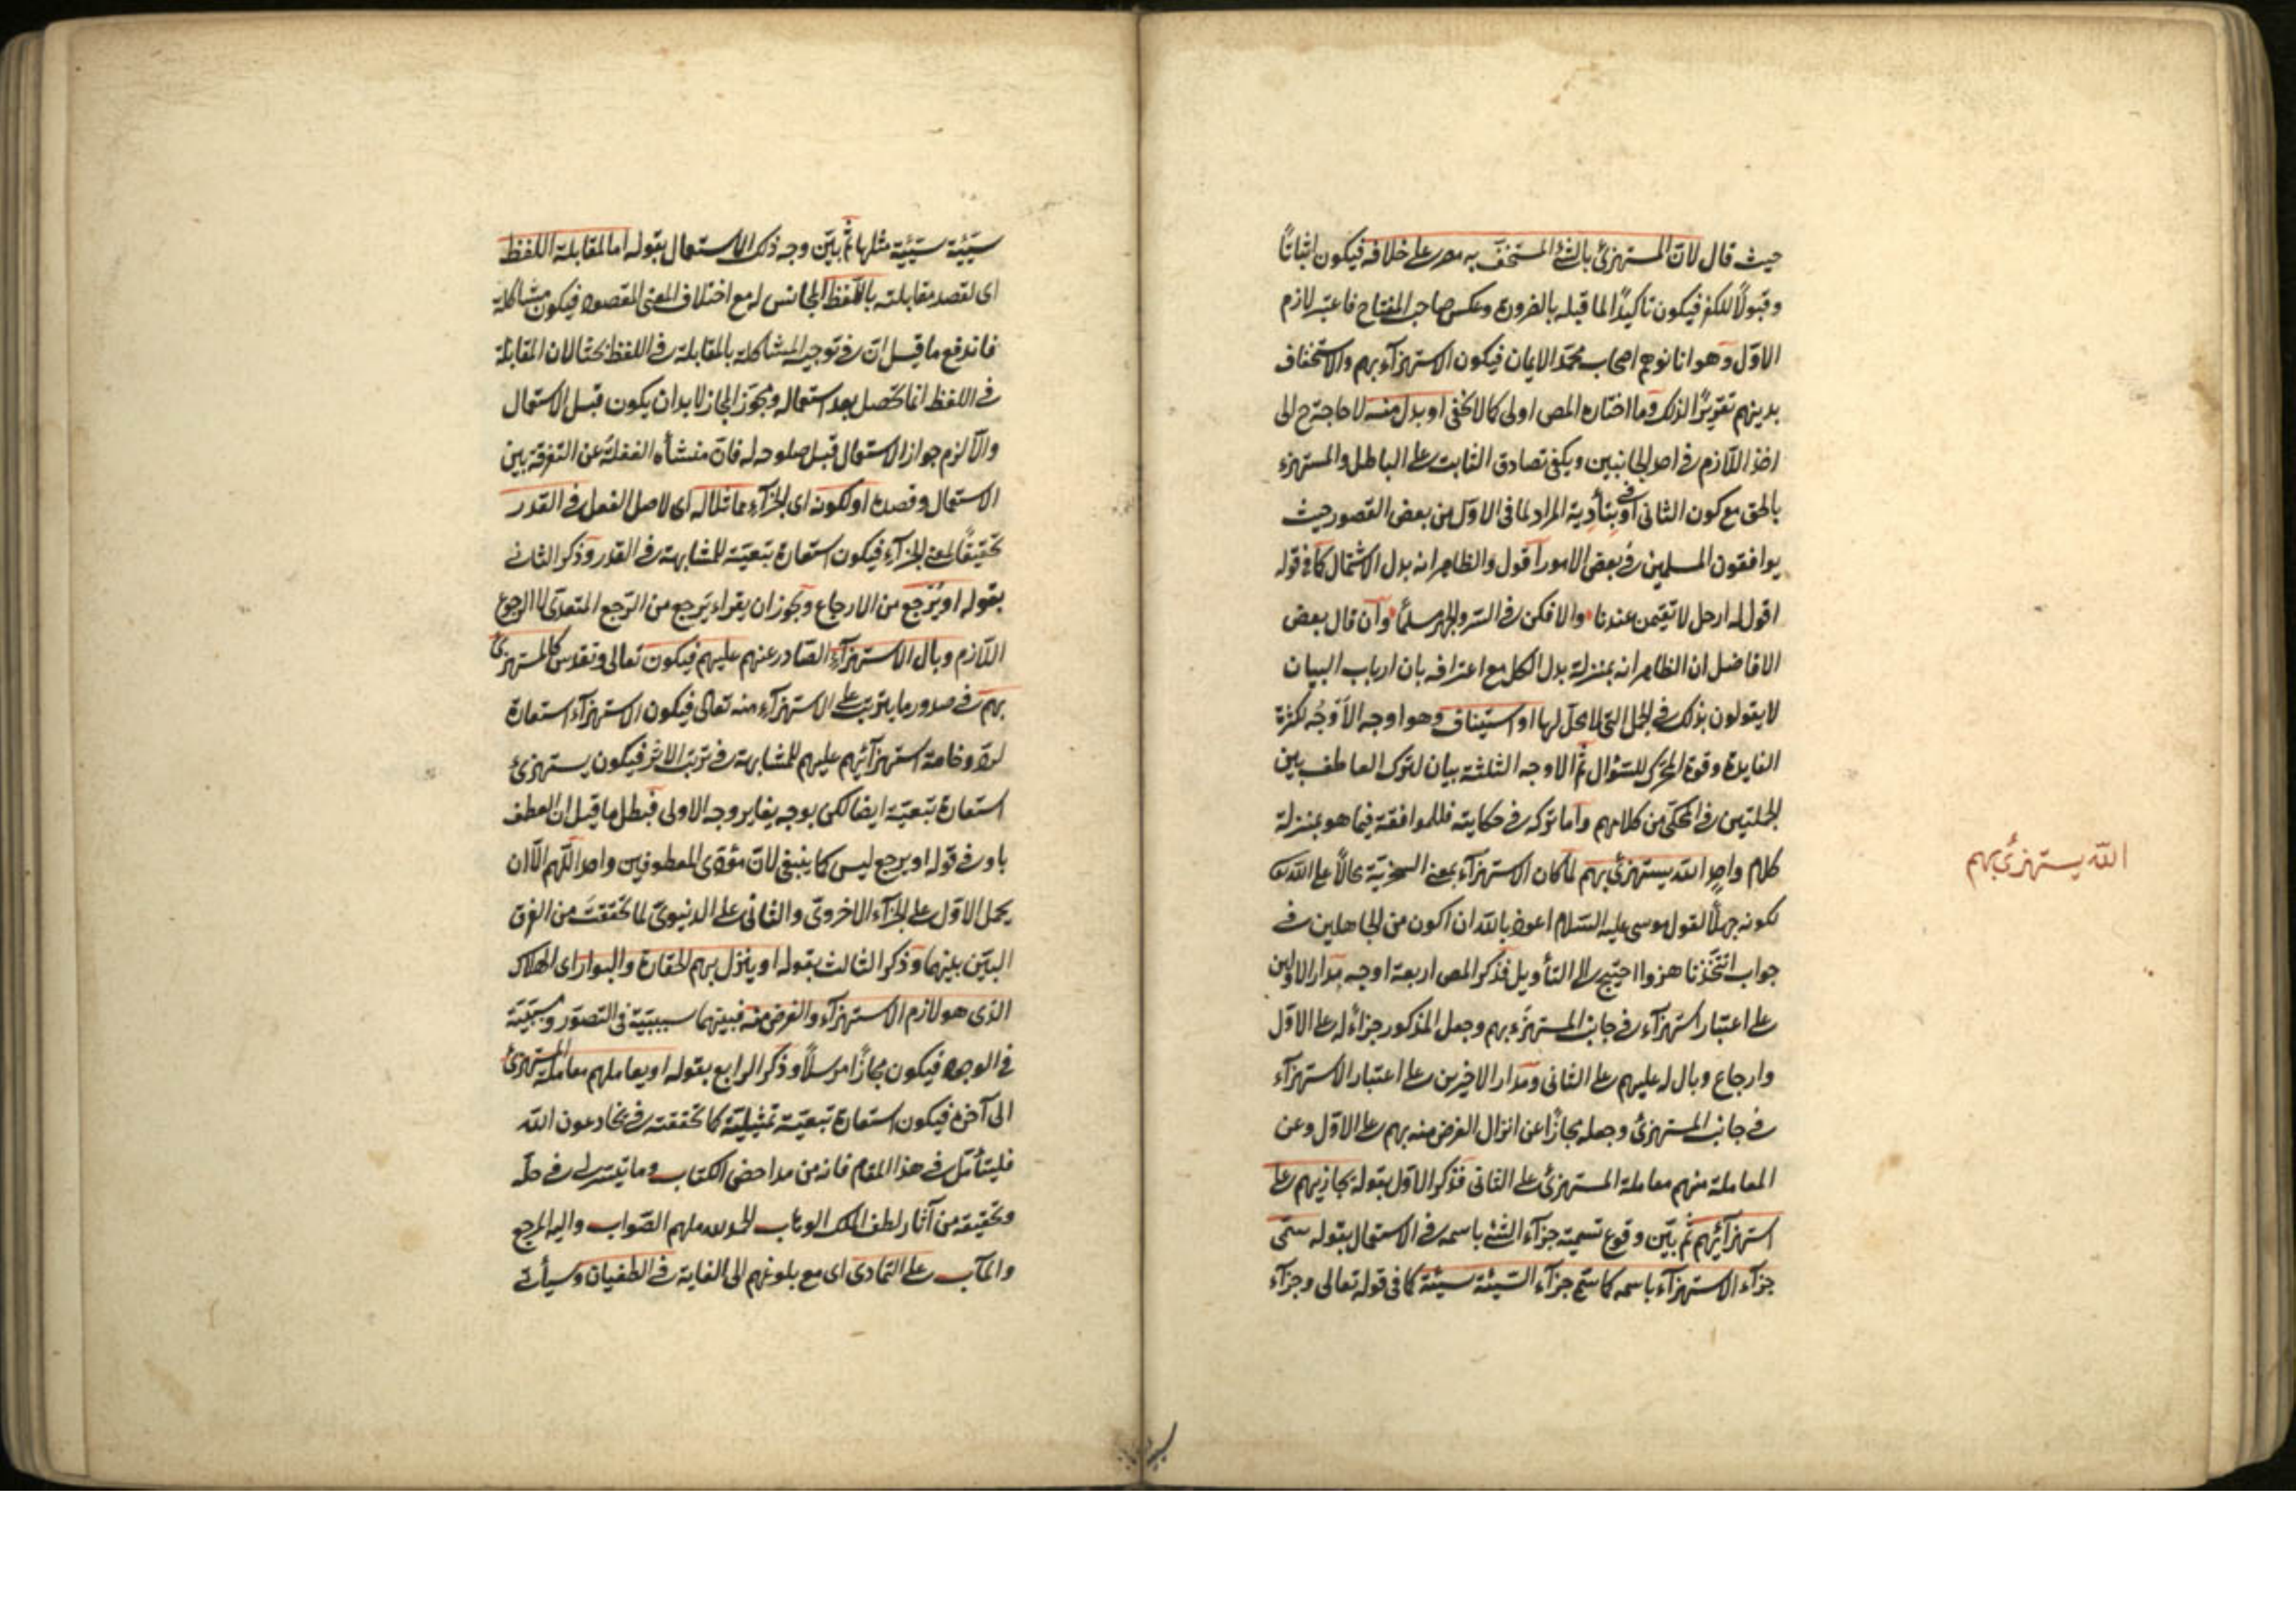 حيث قال لانّ المستهزئ بالشئ المستخفّ به مصر على خلافه فيكون اثباتًا
وقبولًا للكفر فيكون تاكيدًا لما قبله بالضرورة وعكس صاحب المفتاح فاعتبر لازم
الاوّل وهو انا نوهم اصحاب محمّد الايمان فيكون الاستهزآء بهم والاستخفاف
بدينهم تقريرًا لذلك وما اختاره المص اولى كما لا يخفى او بدل منه لا حاجة ح الى
اخذ اللّازم فى احد الجانبين ويكفى تصادق الثابت على الباطل والمستهزء
بالحق مع كون الثانى اوفى بتأدية المراد لما فى الاوّل من بعض القصور حيث
يوافقون المسلمين فى بعض الامور اقول والظاهر انه بدل الاشتمال كما فى قوله
اقول له ارحل لا تقيمن عندنا والا فكن فى السّر والجهر مسلمًا وان قال بعض
الافاضل ان الظاهر انه بمنزلة بدل الكل مع اعترافه بان ارباب البيان
لا يقولون بذلك فى الجمل التى لا محلّ لها او استيناف وهو اوجه الاوجُه لكثرة
الفايدة وقوة المحرّك للسّؤال ثمّ الاوجه الثلثة بيان لترك العاطف بين
الجملتين فى المحكىّ من كلامهم واما تركه فى حكايته فللموافقة فيما هو بمنزلة
كلام واحد الله يستهزئ بهم لما كان الاستهزآء بمعنى السخريّة محالًا على الله
الله يستهزئ بهم
لكونه جهلًا لقول موسى عليه السّلام اعوذ بالله ان اكون من الجاهلين فى
جواب اتتّخذنا هزوا احتيج الى التأويل فذكر المص اربعة اوجه مدار الاولين
على اعتبار استهزآء فى جانب المستهزَء بهم وجعل المذكور جزاءً له على الاوّل
وارجاع وبال له عليهم على الثانى ومدار الاخيرين على اعتبار الاستهزآء
فى جانب المستهزئ وجعله مجازًا عن انزال الغرض منه بهم على الاوّل وعن
المعاملة منهم معاملة المستهزئ على الثانى فذكر الاوّل بقوله يجازيهم على
استهزآئهم ثم بيّن وقوع تسمية جزآء الشئ باسمه فى الاستعمال بقوله سمّى
جزآء الاستهزآء باسمه كما سمّى جزآء السّيئة سيّئة كما فى قوله تعالى وجزآء
سيّئة سيّئة مثلها ثمّ بيّن وجه ذلك الاستعمال بقوله اما لمقابلة اللفظ
اى لقصد مقابلته باللّفظ المجانس له مع اختلاف المعنى المقصود فيكون مشاكلة
فاندفع ما قيل انّ فى توجيه المشاكلة بالمقابلة فى اللفظ بحثا لان المقابلة
فى اللفظ انما تحصل بعد استعماله ومجوّز المجاز لا بد ان يكون قبل الاستعمال
والّا لزم جواز الاستعمال قبل صلوحه له فانّ منشأه الغفلة عن التفرقة بين
الاستعمال وقصده او لكونه اى الجزآء مماثلا له اى لاصل الفعل فى القدر
تحقيقًا لمعنى الجزآء فيكون استعارة تبعيّة للمشابهة فى القدر وذكر الثانى
بقوله او يُرجع من الارجاع ويجوز ان يقراء يَرجع من الرّجع المتعدّى لا الرجوع
اللّازم وبال الاستهزآء الصّادر عنهم عليهم فيكون تعالى وتقدس كالمستهزئ
بهم فى صدور ما يترتب على الاستهزآء منه تعالى فيكون الاستهزآء استعارة
لردّ وخامة استهزآئهم عليهم للمشابهة فى ترتب الاثر فيكون يستهزئ
استعارة تبعيّة ايضا لكن بوجه يغاير وجه الاولى فبطل ما قيل ان العطف
باو فى قوله او يرجع ليس كما ينبغى لانّ مؤدّى المعطوفين واحد اللّهم الّا ان
يحمل الاوّل على الجزآء الاخروىّ والثانى على الدنيوىّ لما تحققتَ من الفرق
البيّن بينهما وذكر الثالث بقوله او ينزل بهم الحقارة والبوار اى الهلاك
الذى هو لازم الاستهزآء والغرض منه فبينهما سببيّة فى التصوّر ومسبّبيّة
فى الوجود فيكون مجازًا مرسلًا وذكر الرابع بقوله او يعاملهم معاملة المستهزئ
الى آخره فيكون استعارة تبعيّة تمثيليّة كما تحققته فى يخادعون الله
فليتأمّل فى هذا المقام فانه من مداحض الكتاب وما تيسّر لى فى حلّه
وتحقيقه من آثار لطف الملك الوهّاب الحمد لله ملهم الصّواب واليه المرجع
والمآب على التمادى اى مع بلوغهم الى الغاية فى الطغيان وسيأتى